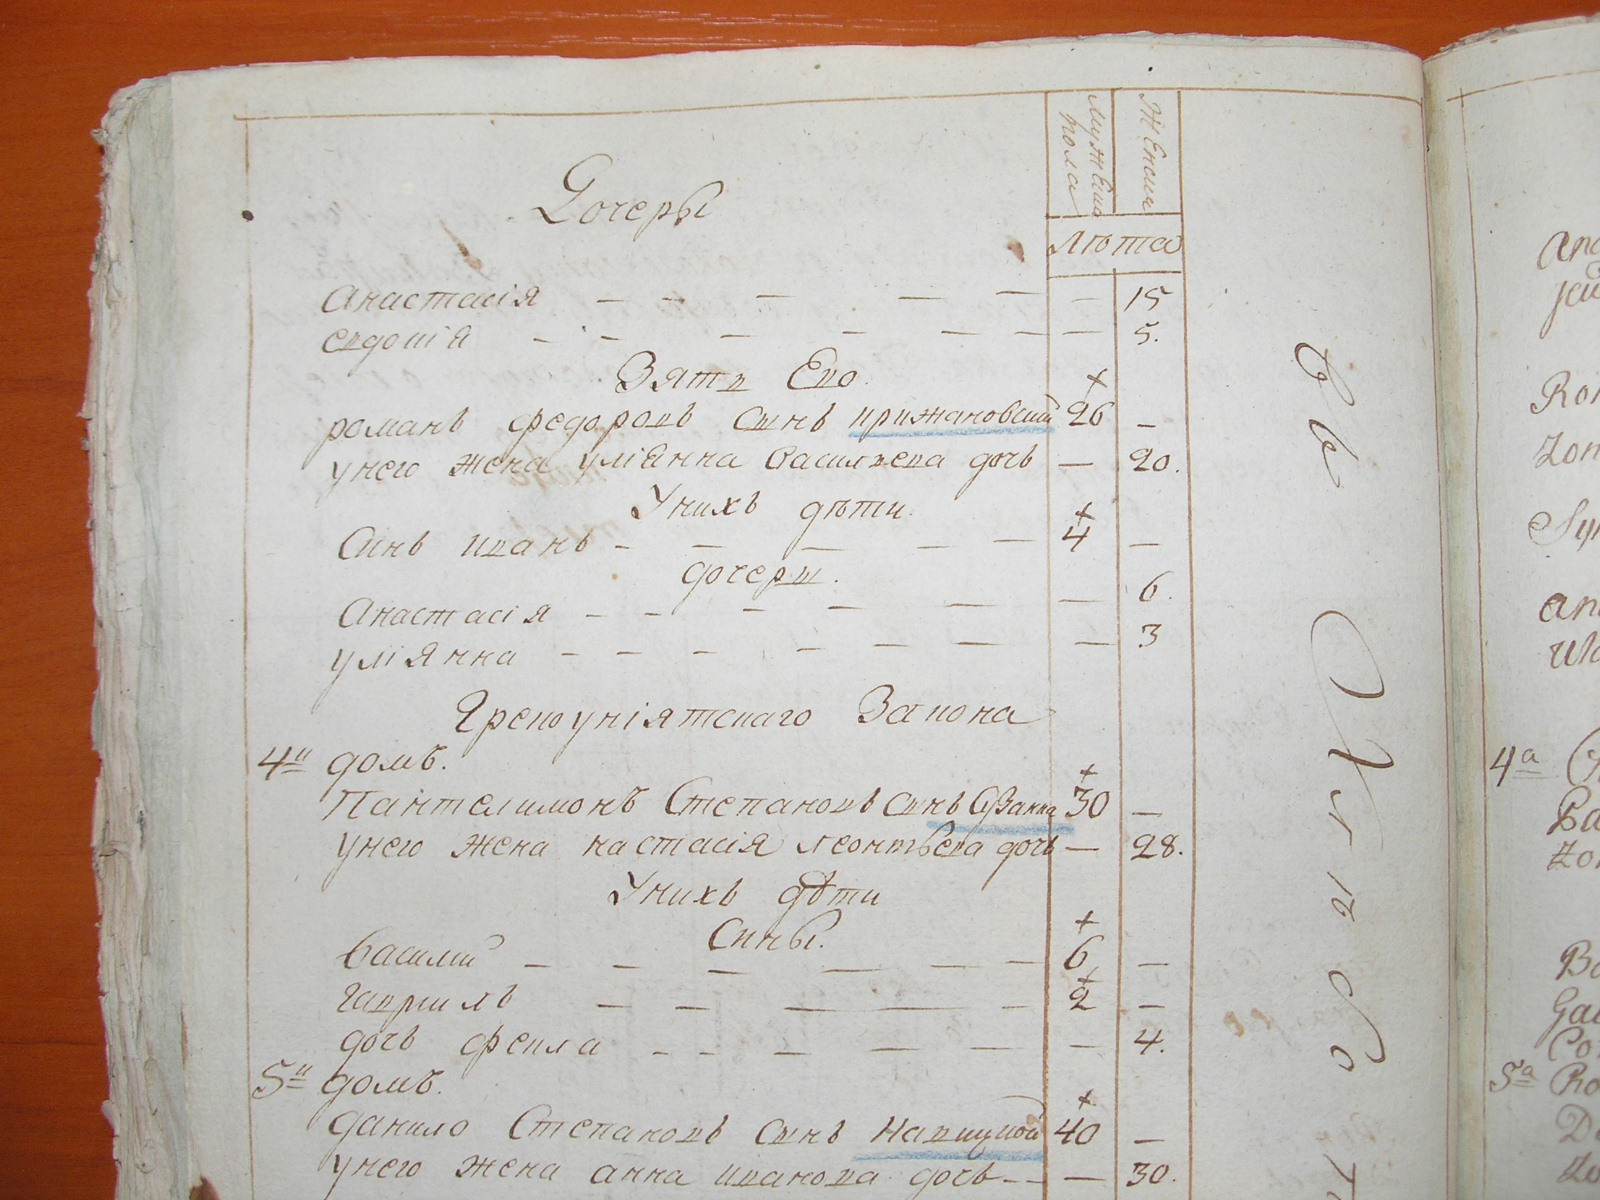 мужеска пола
женска
лѣта
Дочеры
Анастасія — — — — — — 15
Евдокія — — — — — — — 5.
Зять Его.
романъ федоровъ сынъ крижановский 26 —
унего жена уліянна Васильева дочь — 20.
Унихъ дѣти.
Синъ иванъ — — — — — 4 —
дочеры.
Анастасія — — — — — — 6.
уліянна — — — — — — — 3
Грекоуніятскаго Закона
4й домъ.
Пантелимонъ Степановъ сынъ 30 —
унего жена настасія леонтьева дочь — 28.
Унихъ дѣти
Сины.
Василий — — — — — — 6 —
Гаврилъ — — — — — 2 —
дочь фекла — — — — — — 4.
5й домъ.
данило Степановъ сынъ 40 —
унего жена анна иванова дочь — — — 30.
4а
5а